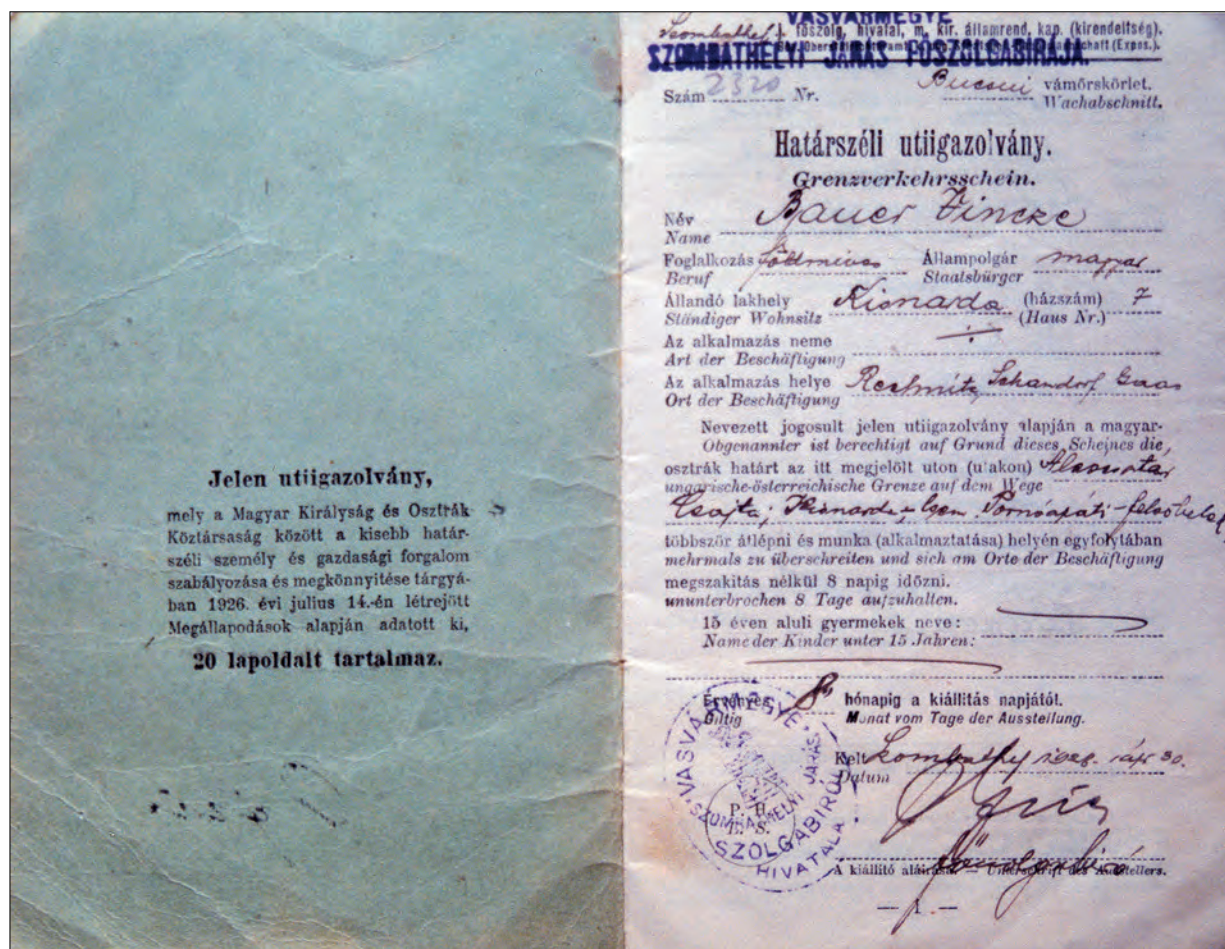 Jelen utiigazolvány,
mely a Magyar Királyság és Osztrák
Köztársaság között a kisebb határ-
széli személy és gazdasági forgalom
szabályozása és megkönnyitése tárgyá-
ban 1926. évi julius 14.-én létrejött
Megállapodások alapján adatott ki,
20 lapoldalt tartalmaz.
VASVÁRMEGYE
főszolg. hivatal, m. kir. államrend. kap. (kirendeltség).
SZOMBATHELYI JÁRÁS FŐSZOLGABIRÁJA.
Szám 2320 Nr. Bucsui vámőrskörlet.
Wachabschnitt.
Határszéli utiigazolvány.
Grenzverkehrsschein.
Név Bauer Vincze
Name
Foglalkozás földmives Állampolgár magyar
Beruf Staatsbürger
Állandó lakhely Kisnarda (házszám) 7
Ständiger Wohnsitz (Haus Nr.)
Az alkalmazás neme
Art der Beschäftigung
Az alkalmazás helye Rechnitz Schandorf Gaas
Ort der Beschäftigung
Nevezett jogosult jelen utiigazolvány alapján a magyar-
Obgenannter ist berechtigt auf Grund dieses Scheines die
osztrák határt az itt megjelölt uton (utakon)
ungarische-österreichische Grenze auf dem Wege
Csajta, Kisnarda - Pornóapáti - felső
többször átlépni és munka (alkalmaztatása) helyén egyfolytában
mehrmals zu überschreiten und sich am Orte der Beschäftigung
megszakitás nélkül 8 napig időzni.
ununterbrochen 8 Tage aufzuhalten.
15 éven aluli gyermekek neve:
Name der Kinder unter 15 Jahren:
Érvényes 8 hónapig a kiállitás napjától.
Giltig Monat vom Tage der Ausstellung.
Kelt Szombathely 1928.  30.
Datum
P. H.
L. S.
VASVÁRMEGYE
SZOMBATHELYI JÁRÁS
SZOLGABIRÓI HIVATALA
főszolgabiró
A kiállitó aláirása. — Unterschrift des Ausstellers.
— 1 —